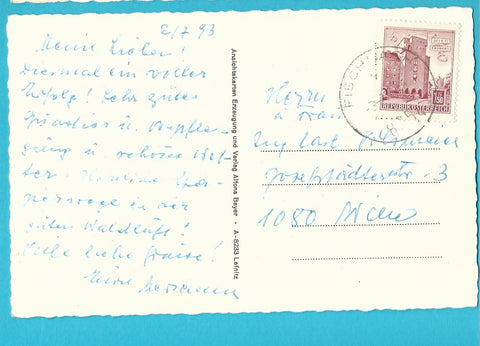 2/7 93
Meine Lieben!
Diesmal ein voller
Erfolg! Sehr gutes
Quartier u. Verpfle-
gung u. schönes Wet-
ter. Herrliche Spa-
zierwege in der
guten Waldluft!
Viele liebe Grüsse!
Eure
Ansichtskarten Erzeugung und Verlag Alfons Beyer • A-8233 Lafnitz
REPUBLIK ÖSTERREICH
1.50
FISCH
Herrn
u. Frau
Ing.
Josefstädterstr. 3
1080 Wien